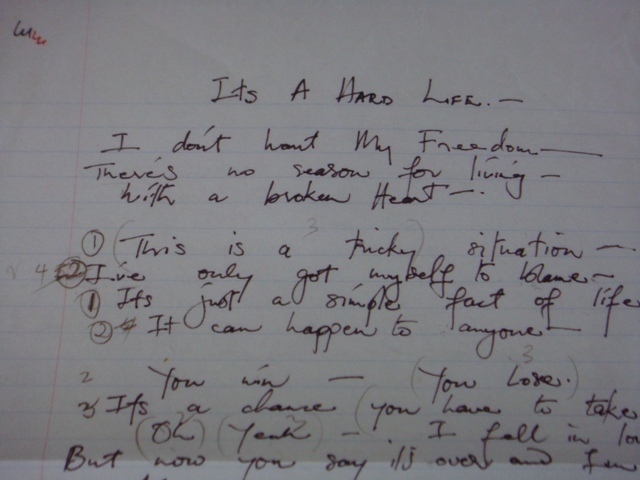 ITS A HARD LIFE. —
I don't want My Freedom —
There's no season for living —
With a broken Heart —.
3
① (This is a tricky) situation —.
4 ② I've only got myself to blame —
① Its just a simple fact of life
② It can happen to anyone —
3
2 You win — (You Lose.)
3 It's a chance (you have to take
(Oh) (Yeah) — . I fall in lo
But now you say it's over and I'm